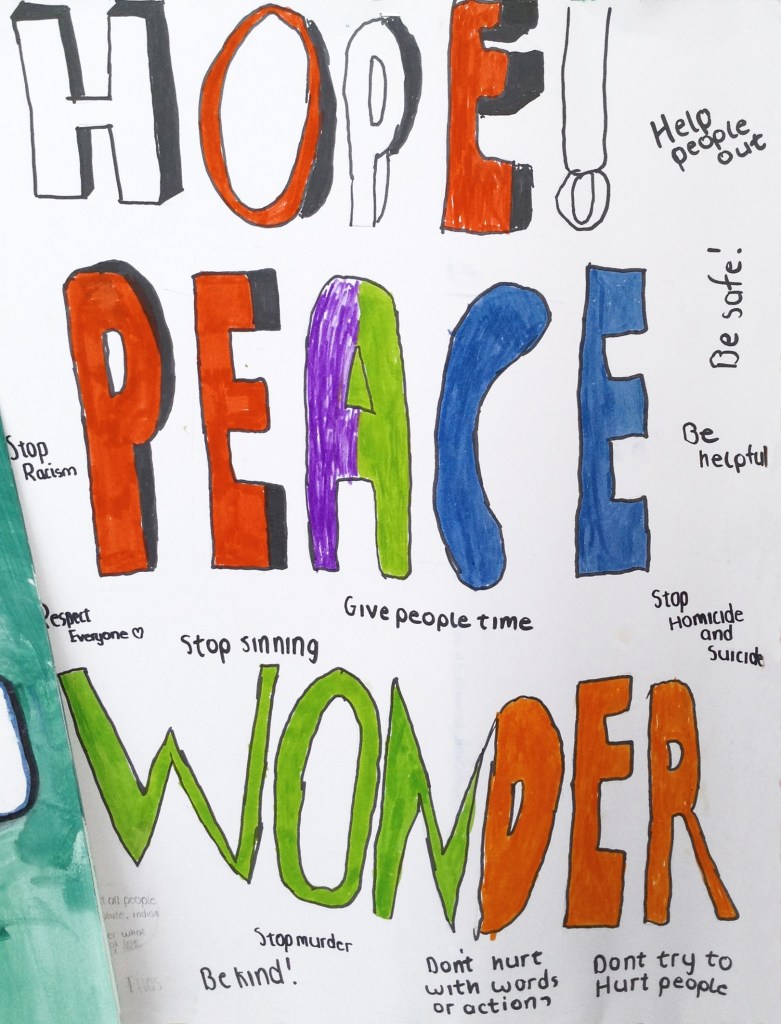 HOPE!
Help
people
out
Be safe!
PEACE
Be
helpful
Stop
Racism
Respect
Everyone ♡
Give people time
Stop
Homicide
and
Suicide
Stop sinning
WONDER
all people
Stop murder
Be kind!
Don't hurt
with words
or action,
Dont try to
Hurt people